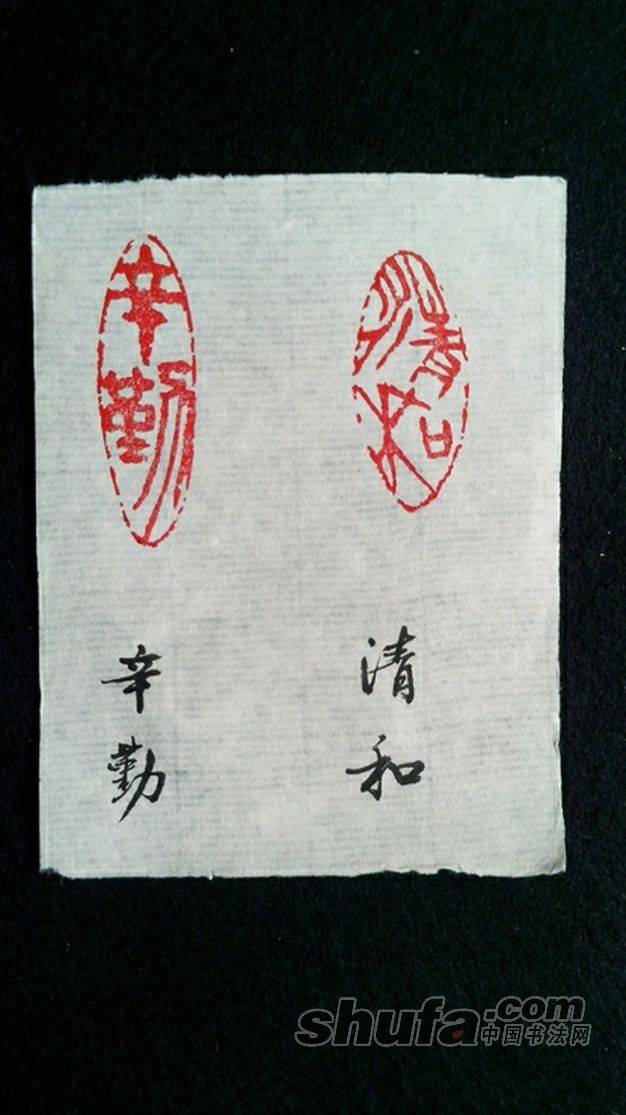 清和
辛勤
清和
辛勤
shufa.com
中国书法网